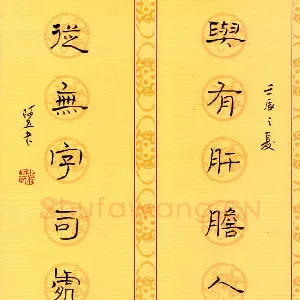 壬辰之夏
與有肝膽人
從無字句處
Shufawang.CN